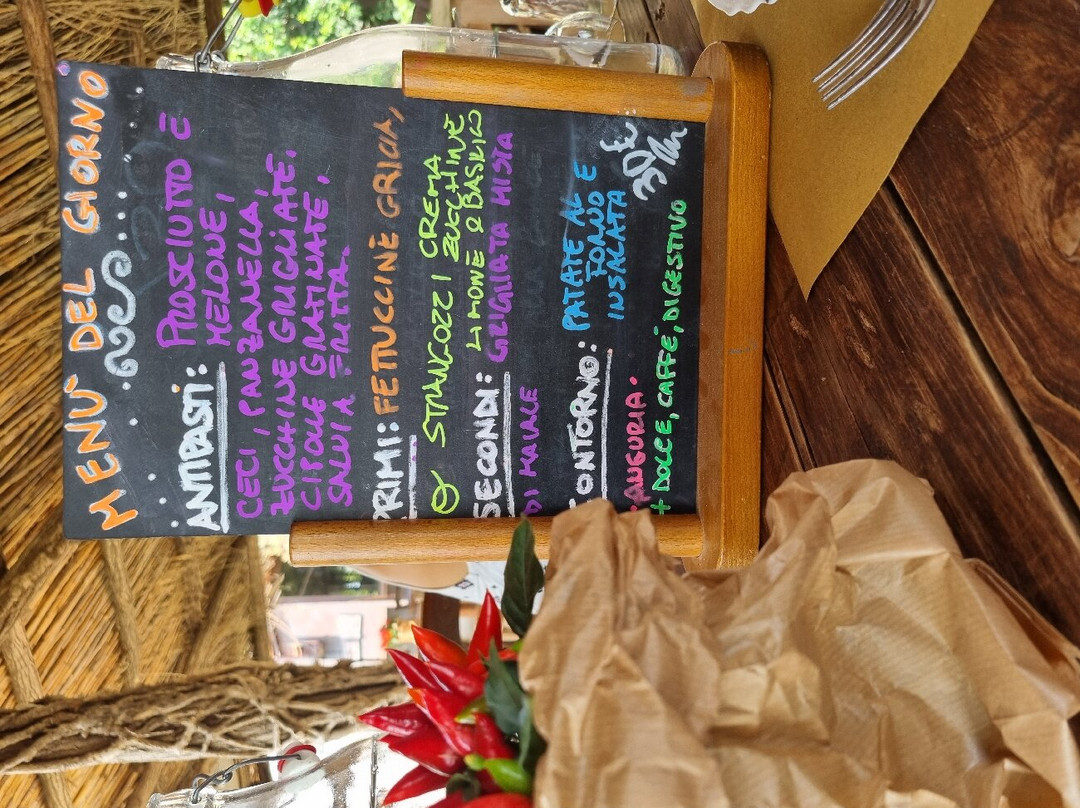 MENU' DEL GIORNO
ANTIPASTI: PROSCIUTTO E
MELONE,
CECI, PANZANELLA,
ZUCCHINE GRIGLIATE.
CIPOLLE GRATINATE,
SALVIA FRITTA.
PRIMI: FETTUCCINE GRICIA,
O STRANGOZZI CREMA
ZUCCHINE
LIMONE e BASILICO
SECONDI: GRIGLIATA MISTA
DI MAIALE
CONTORNO: PATATE AL
FORNO E
INSALATA
ANGURIA.
+ DOLCE, CAFFÈ, DIGESTIVO